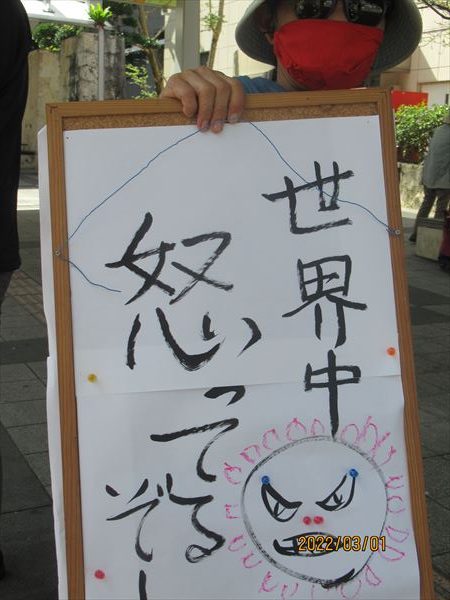 世界中
怒ってる
ぞー
2022/03/01